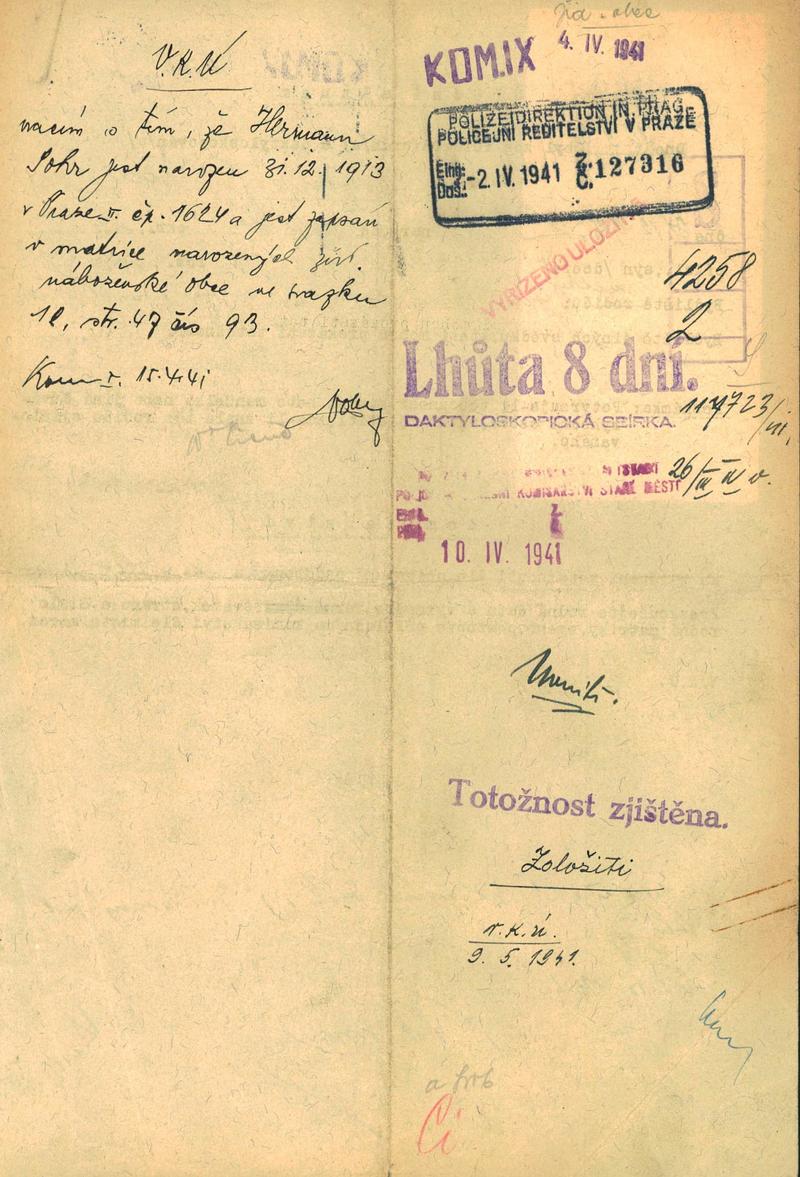 V.K.Ú
vracím s tím, že Hermann
jest narozen 31.12.1913
v Praze II. čp. 1624 a jest zapsán
v matrice narozených žid.
náboženské obce ve svazku
str. 47 čís 93.
Kom. 15.4.41
žid. obec
KOM.IX 4. IV. 1941
POLIZEIDIREKTION IN PRAG
POLICEJNÍ ŘEDITELSTVÍ V PRAZE
Eing.: Došl.: -2. IV. 1941 Z. Č. 127316
VYŘÍZENO ULOŽIT
4258
2
Lhůta 8 dní.
DAKTYLOSKOPICKÁ SBÍRKA.
117723/III.
KOMISAŘSTVÍ STARÉ MĚSTO
26/III IV
10. IV. 1941
Totožnost zjištěna.
Založiti
v.k.ú.
9. 5. 1941.